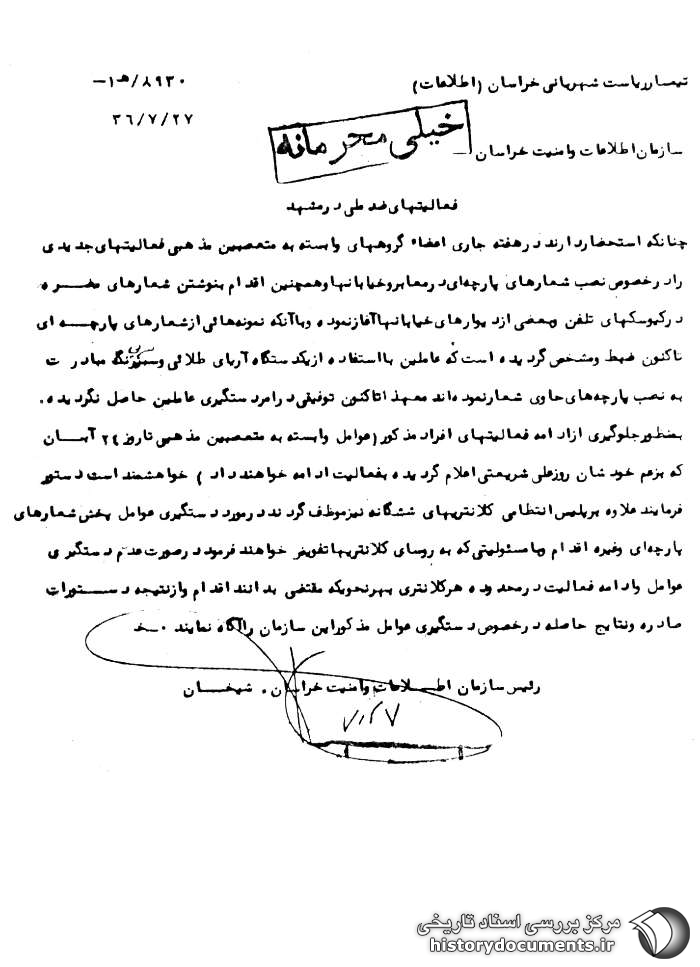 تیمسار ریاست شهربانی خراسان (اطلاعات)
۸۹۳۰/ هـ ۱-
۳۶/۷/۲۷
خیلی محرمانه
سازمان اطلاعات وامنیت خراسان -
فعالیتهای ضد ملی در مشهد
چنانکه استحضار دارند در هفته جاری اعضاء گروههای وابسته به متعصبین مذهبی فعالیتهای جدیدی
را در خصوص نصب شعارهای پارچه‌ای در معابر و خیابانها وهمچنین اقدام بنوشتن شعارهای مضره
در کیوسکهای تلفن وبعضی از دیوارهای خیابانها آغاز نموده وباآنکه نمونه‌هائی از شعارهای پارچه ای
تاکنون ضبط ومشخص گردیده است که عاملین بااستفاده از یکدستگاه آریای طلائی و رنگ مبادرت
به نصب پارچه‌های حاوی شعار نموده‌اند معهذا تاکنون توفیقی در امر دستگیری عاملین حاصل نگردیده .
بمنظور جلوگیری از ادامه فعالیتهای افراد مذکور (عوامل وابسته به متعصبین مذهبی تاروز ۲۴ آبان
که بزعم خودشان روز علی شریعتی اعلام گردیده بفعالیت ادامه خواهند داد ) خواهشمند است دستور
فرمایند علاوه بر پلیس انتظامی کلانتریهای ششگانه نیز موظف گردند در مورد دستگیری عوامل پخش شعارهای
پارچه‌ای وغیره اقدام وبامسئولیتی که به روسای کلانتریها تفویض خواهند فرمود در صورت عدم دستگیری
عوامل وادامه فعالیت در محدوده هر کلانتری بهر نحویکه مقتضی بدانند اقدام واز نتیجه دستورات
صادره ونتایج حاصله در خصوص دستگیری عوامل مذکور این سازمان را آگاه نمایند .
رئیس سازمان اطلاعات وامنیت خراسان . شیخان
۷/۲۷
مرکز بررسی اسناد تاریخی
historydocuments.ir